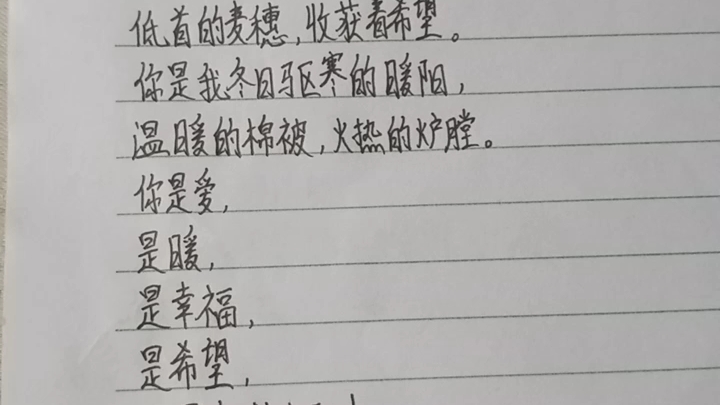 低首的麦穗,收获着希望。
你是我冬日驱寒的暖阳,
温暖的棉被,火热的炉膛。
你是爱,
是暖,
是幸福,
是希望,